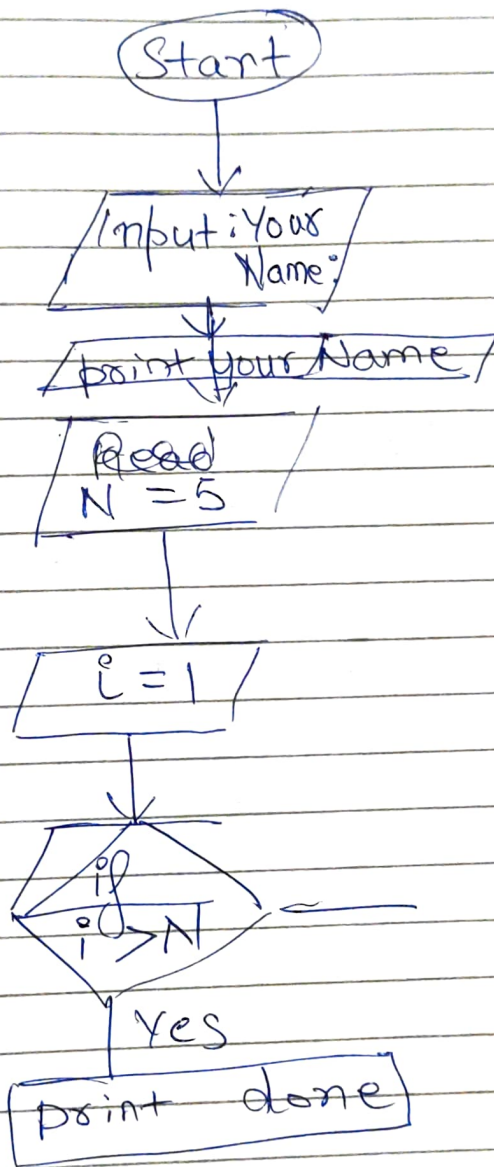 Start
Input : Your
Name:
print your Name
Read
N = 5
i = 1
if
i > N
Yes
print done